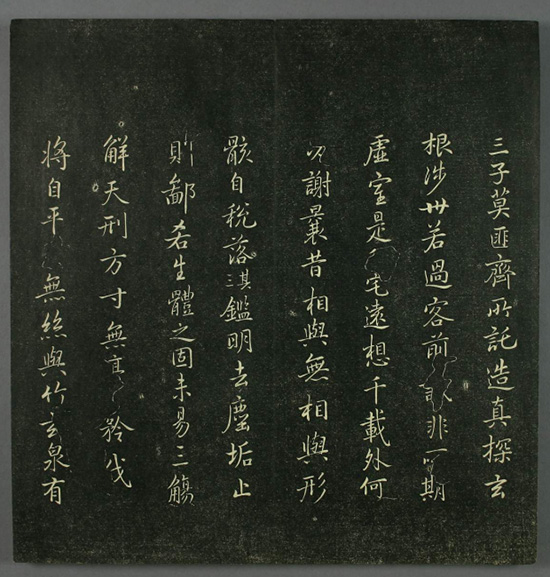 三子莫匪齊所託造真探玄
根涉丗若過客前非期
虛室是宅遠想千載外何
必謝曩昔相與無相與形
骸自稅落淇鑑明去塵垢止
則鄙吝生體之固未易三觴
解天刑方寸無矜伐
將自平無絲與竹玄泉有